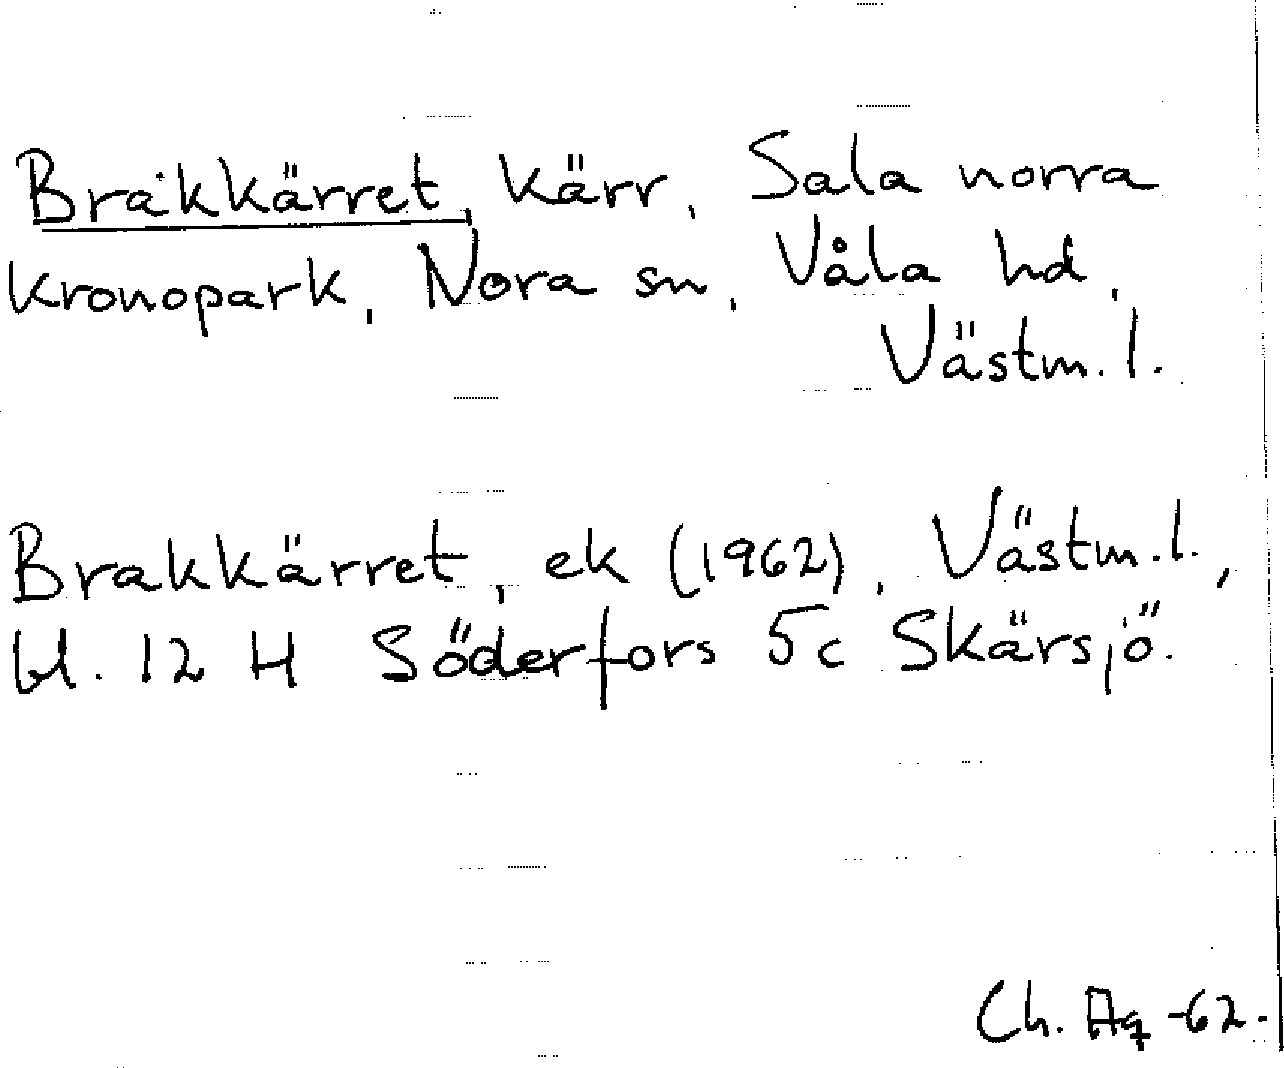 Brakkärret, kärr, Sala norra
kronopark, Nora sn, Våla hd,
Västm. l.
Brakkärret, ek (1962), Västm. l.,
bl. 12 H Söderfors 5c Skärsjö.
Ch. Ag -62.